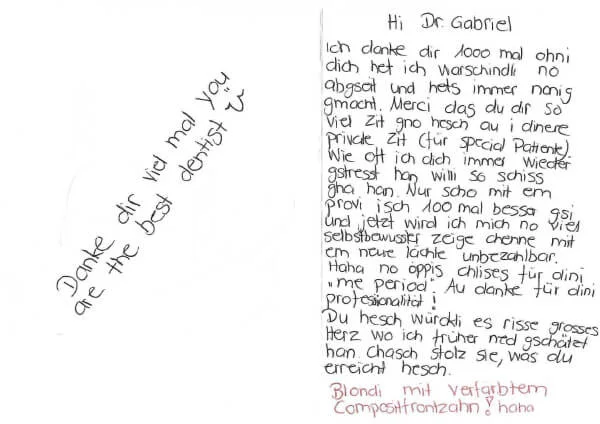 Danke dir viel mal you
are the best dentist
Hi Dr. Gabriel
Ich danke dir 1000 mal ohni
dich het ich warschindli no
abgseit und hets immer nonig
gmacht. Merci das du dir so
viel Zit gno hesch au i dinere
private Zit (für special Patiente)
Wie oft ich dich immer wieder
gstresst han willi so schiss
gha han. Nur scho mit em
provi isch 100 mal besser gsi
und jetzt wird ich mich no viel
selbstbewusster zeige chenne mit
em neue lächle unbezahlbar.
Haha no öppis chlises für dini
"me period". Au danke für dini
professionalität!
Du hesch würckli es risse grosses
Herz wo ich früher ned gschätzt
han. Chasch stolz sie, was du
erreicht hesch.
Blondi mit verfärbtem
Compositfrontzahn! haha